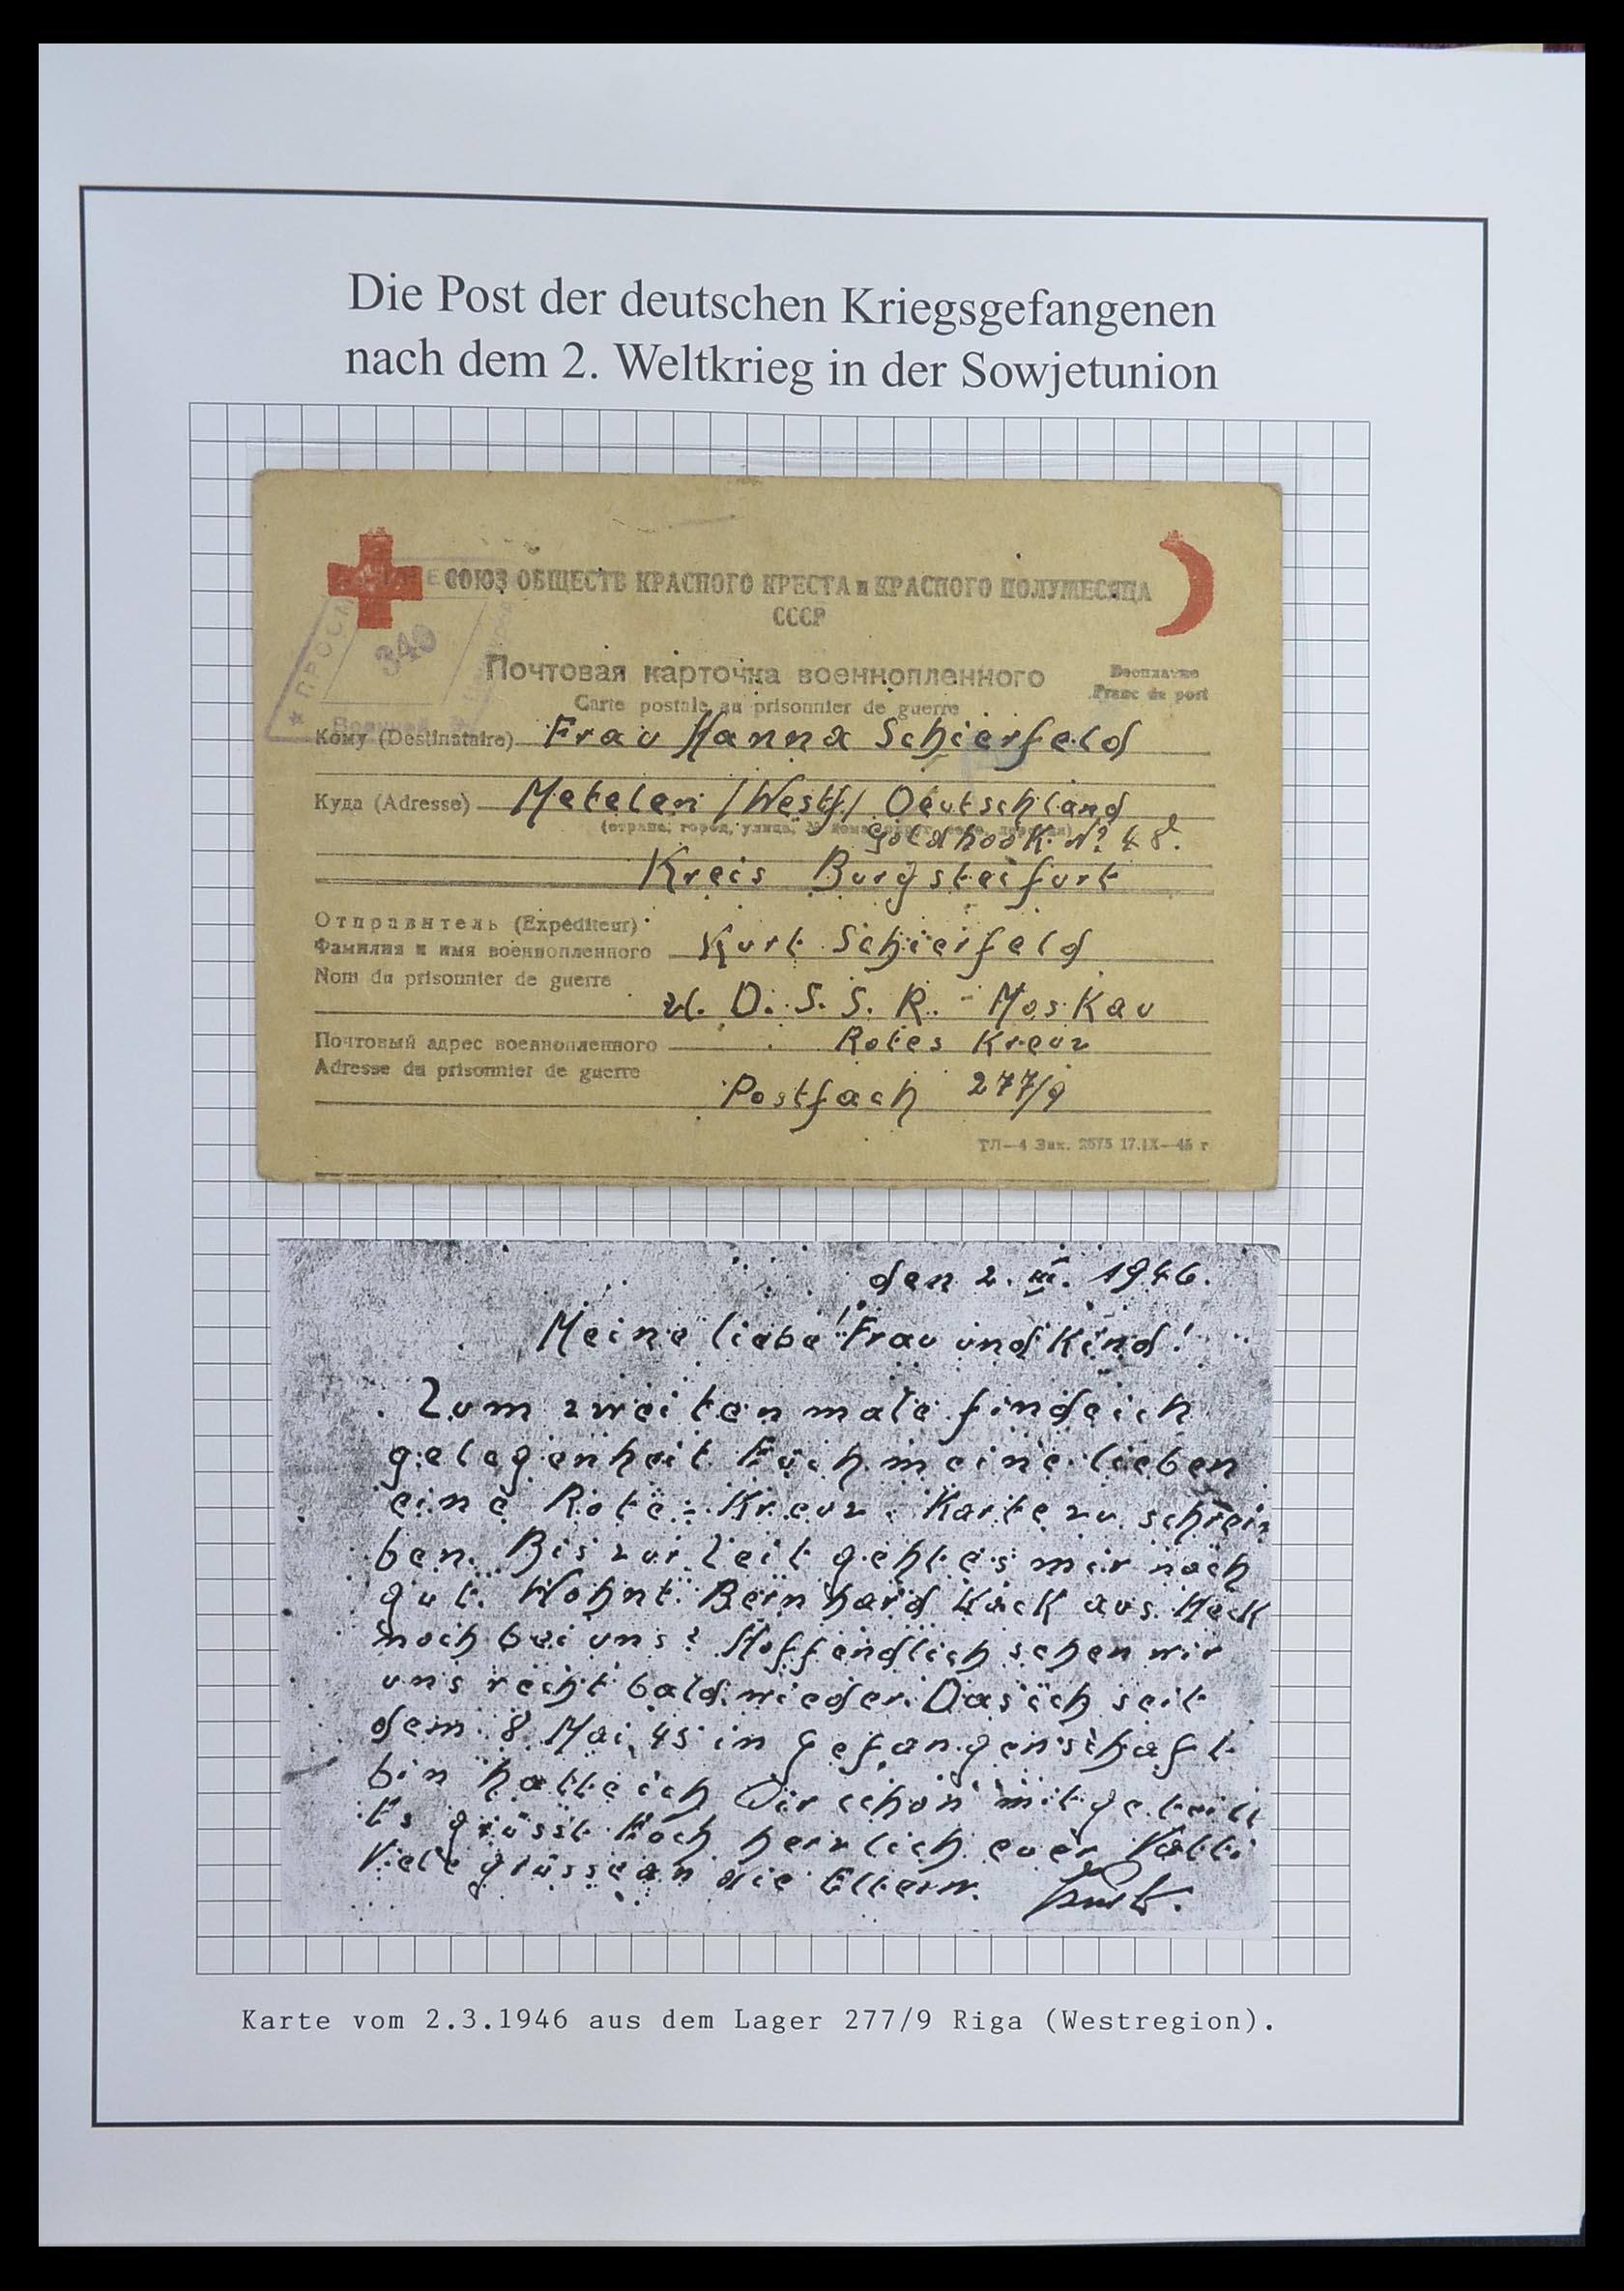 Die Post der deutschen Kriegsgefangenen
nach dem 2. Weltkrieg in der Sowjetunion
СОЮЗ ОБЩЕСТВ КРАСНОГО КРЕСТА и КРАСНОГО ПОЛУМЕСЯЦА
СССР
340
Почтовая карточка военнопленного
Бесплатно
Carte postale au prisonnier de guerre
Franc de port
Кому (Destinataire) Frau Hanna Schierfeld
Куда (Adresse) Metelen /Westf/ Deutschland
(страна, город, улица, № дома, округ, село, деревня)
Goldhook N° 48.
Kreis Burgsteifurt
Отправитель (Expéditeur)
Фамилия и имя военнопленного Kurt Schierfeld
Nom du prisonnier de guerre
U. D. S. S. R. - Moskau
Почтовый адрес военнопленного Rotes Kreuz
Adresse du prisonnier de guerre
Postfach 277/9
ТЛ—4 Зак. 2575 17.IX—45 г
den 2. III. 1946.
Meine liebe Frau und Kind!
Zum zweiten male finde ich
gelegenheit Euch meine lieben
eine Rote-Kreuz. Karte zu schrei
ben. Bis zur Zeit geht es mir noch
gut. Wohnt Bernhard aus
noch bei uns? Hoffendlich sehen wir
uns recht bald wieder. Das ich seit
dem 8 Mai 45 in Gefangenschaft
bin hatte ich Dir schon mitgeteilt
Es grüsst Euch herzlich euer Vatti
Viele grüsse an die Eltern. Kurt.
Karte vom 2.3.1946 aus dem Lager 277/9 Riga (Westregion).